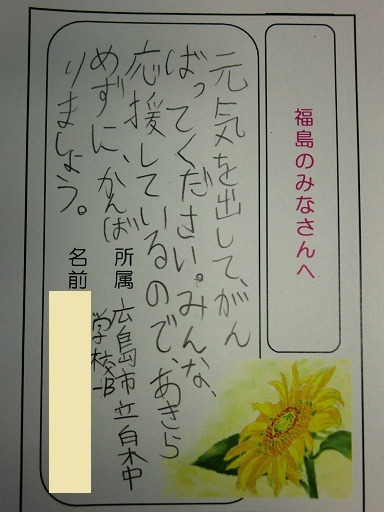 福島のみなさんへ
元気を出して、がん
ばってください。みんな、
応援しているので、あきら
めずに、がんば
りましょう。
所属 広島市立白木中
学校
名前